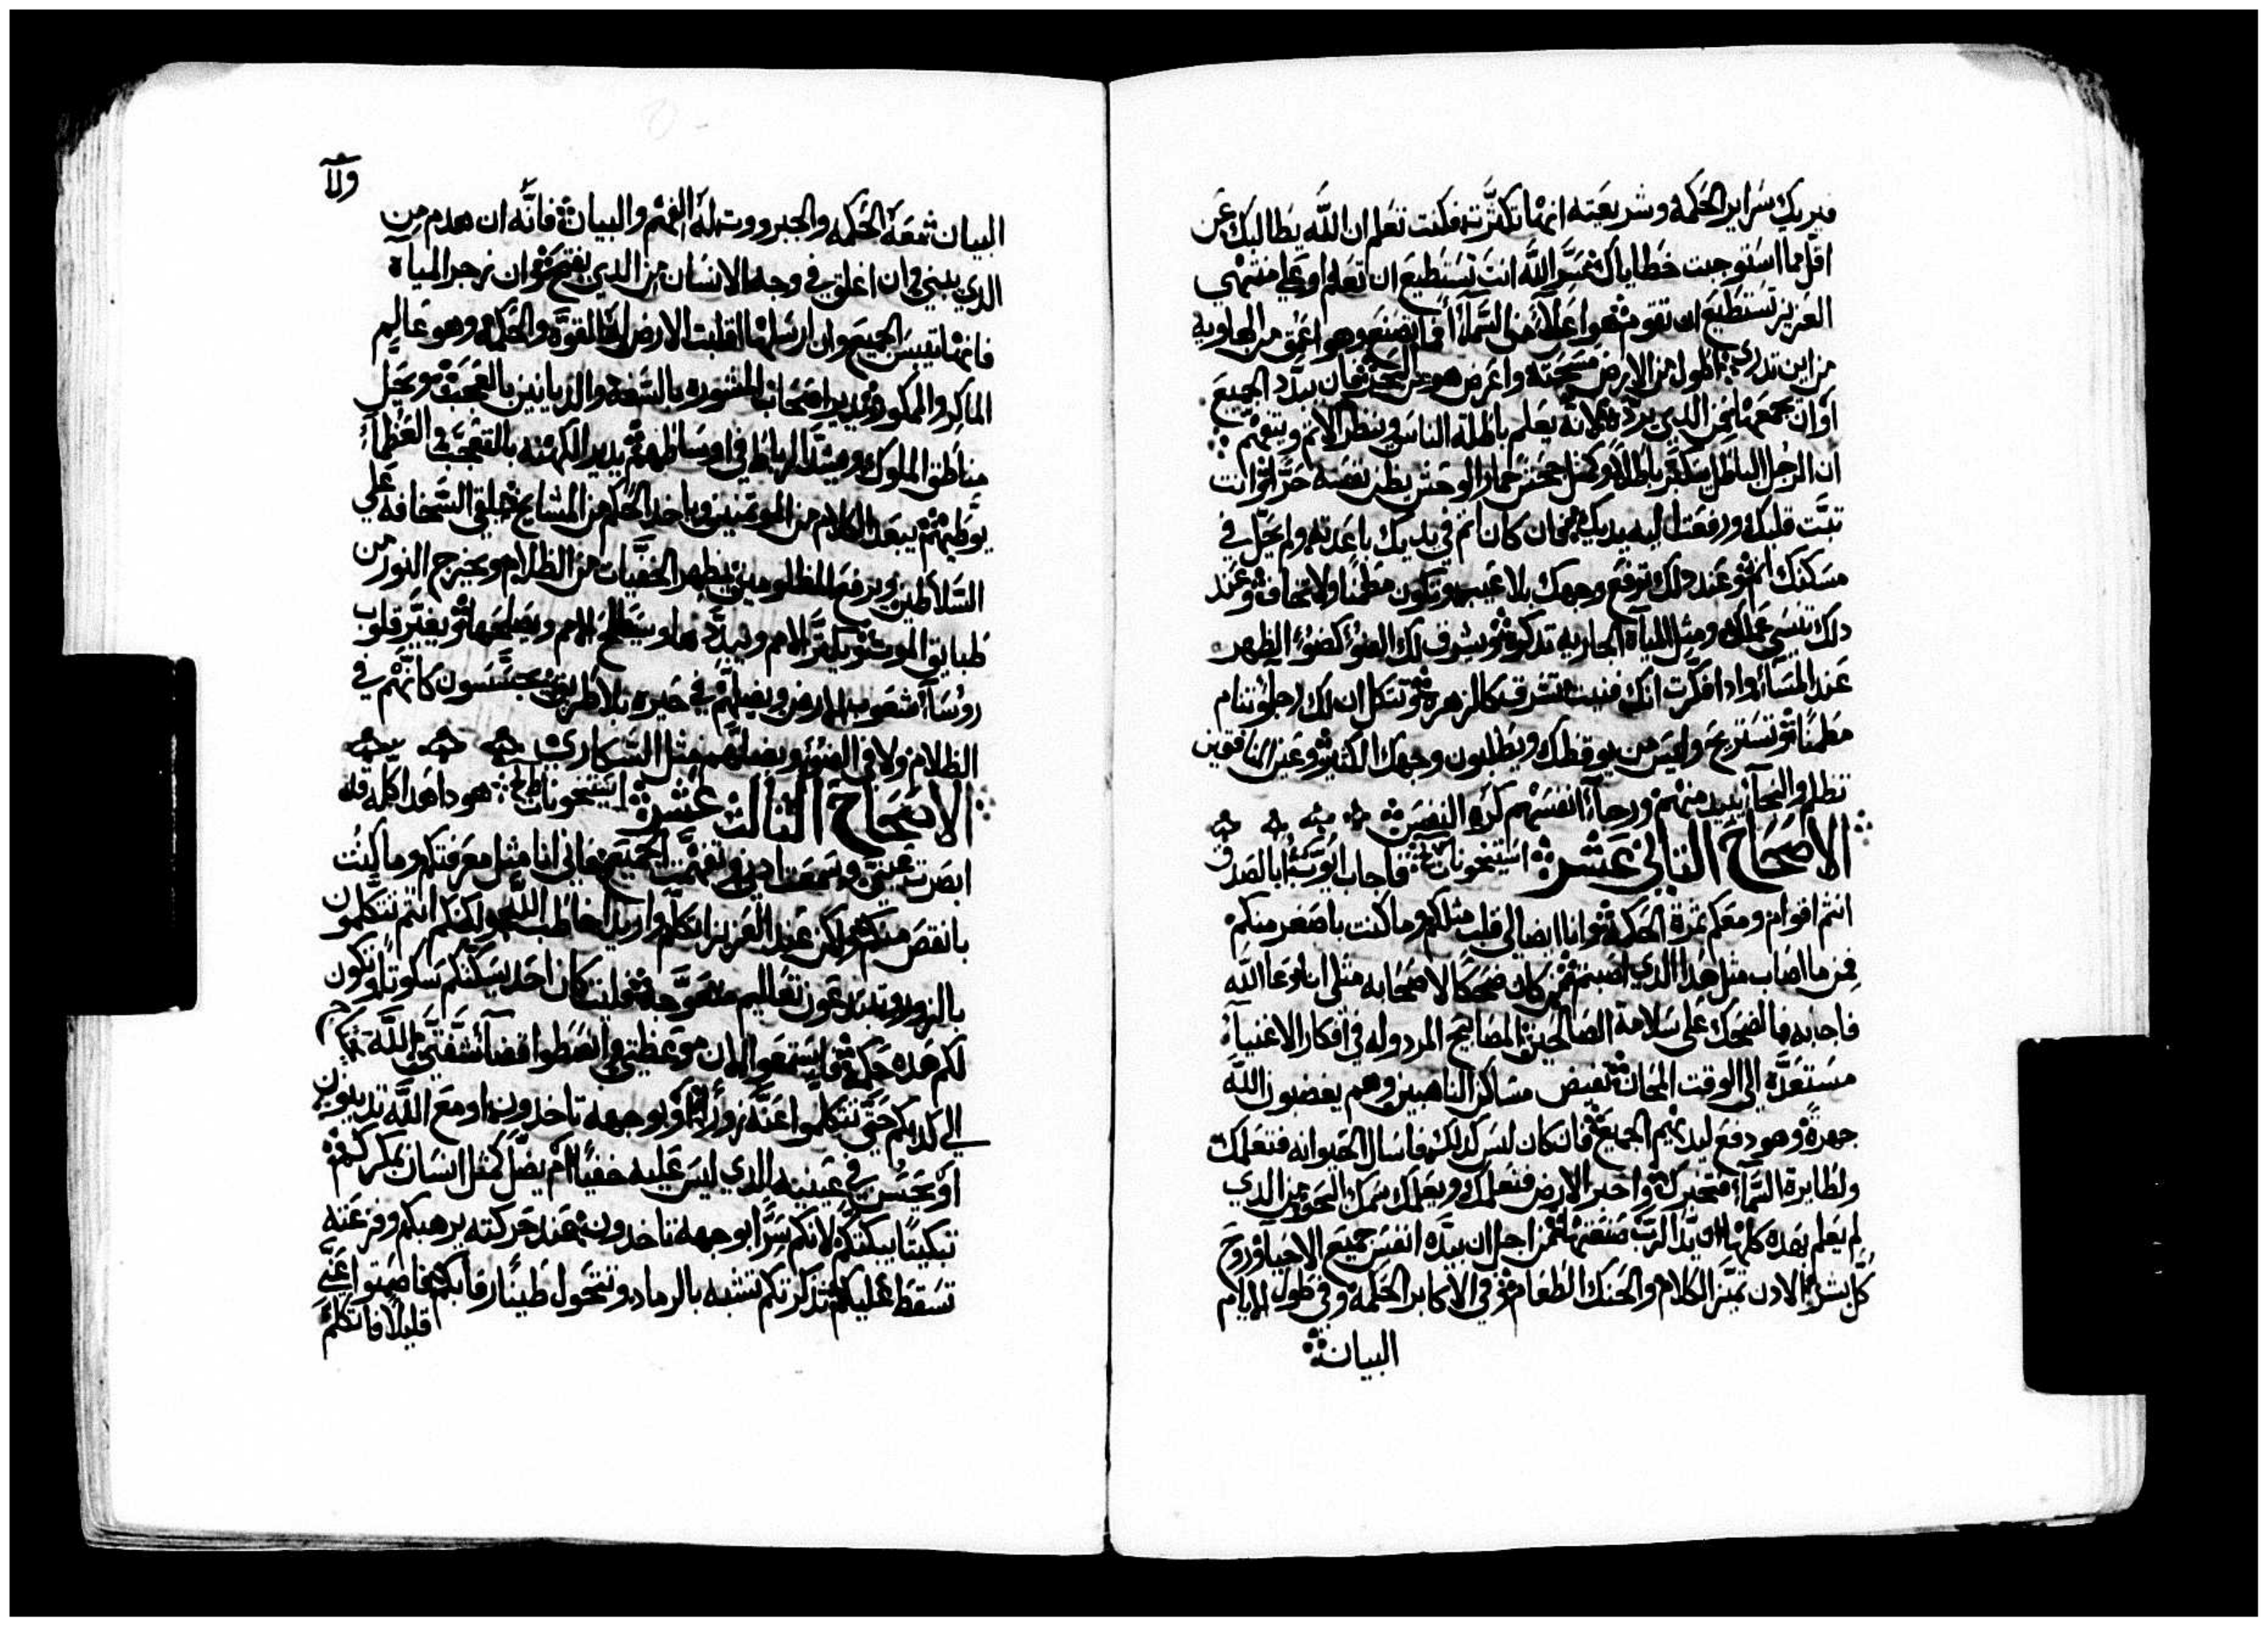 فيريك سراير الحكمة وشريعته انها تكثرت فكنت تعلم ان الله يطالبك عن
اقل مما استوجبت خطاياك سر الله انت تستطيع ان تعلم او علي منتهي
العزيز تستطيع ان تقوم هو اعلا من السماء فما تصنع وهو اعمق من الهاويه
من اين تدري اطول من الارض مسحته واعرض هو من البحر فان بدد الجميع
او ان جمعها فمن الذي يرده لانه يعلم باطلة الناس وينظر الاثم ويتفهم
ان الرجل الباطل يتكبر باطلا وكمثل جحش حمار الوحش يظن نفسه حرا انت
تبت قلبك ورفعت اليه يديك فان كان اثم في يديك باعدته ولم يحل في
مسكنك اثم وعند دلك ترفع وجهك بلا عيب وتكون مطمنا ولا تخاف وعند
دلك تنسي عملك ومثل المياه الجاريه تدكره ويشرف لك الضو كضوء الظهر
عند المساء وادا افكرت انك فنيت تشرق كالزهره وتتكل ان لك رجا وتنام
مطمنا وتستريح وليس من يوقظك ويطلبون وجهك الكثير وعين المنافقين
تظلم والنجا يبيد منهم ورجاء انفسهم كره النفس
الاصحاح الثاني عشر استيخونات فاجاب ايوب ابالصدق
انتم اقوام ومعكم ثمرة الحكمة وانا ايضا لي قلب مثلكم وما كنت باصغر منكم
فمن ما اصاب مثل هدا الدي اصبتم من كان ضحكا لاصحابه مثلي انا دعا الله
فاجابه فالضحك علي سلامة الصالحين المصابيح المردوله في افكار الاغنيا
مستعدة الي الوقت المحان تفيض مساكن الناهبين وهم يغضبون الله
جهرة وهو دفع ليديهم الجميع فان كان ليس كدلك فاسال الحيوانه فتعلمك
ولطايرة السماء فتخبرك واخبر الارض فتعلمك ويعلمك سمك البحر من الدي
لم يعلم بهده كلها ان يد الرب صنعتها من اجل ان بيده انفس جميع الاحيا وروح
كل بشر الادن تميز الكلام والحنك الطعام في الاكابر الحكمة وفي طول الايام
البيان
ولا
البيان معه الحكمه والجبروت له الفهم والبيان فانه ان هدم من
الدي يبني وان اغلق في وجه الانسان من الدي يفتح وان زجر المياه
فانها تيبس الجميع وان ارسلها اقلبت الارض له القوة والحكمة وهو عالم
الماكر والممكور يدير اصحاب المشوره بالسفه والديانين بالعجب ويحل
مناطق الملوك ويشد الرباط في اوساطهم يدير الكهنه بالتعجب والعظماء
يوطيهم يبعد الكلام من الموتمنين وياخد الحكم من المشايخ يلقي السخافة علي
السلاطين ويرفع المظلومين يظهر الخفيات من الظلام ويخرج النور من
طبايق الموت يكثر الامم ويبددها ويسطح الامم ويصلحها ويغير قلوب
روساء شعوب الارض ويضلهم في حيره بلا طريق يجسسون كانهم في
الظلام ولا في الضوء ويضلهم مثل السكاري
الاصحاح الثالث عشر استيخونات هودا هدا كله قد
ابصرت عيني وسمعت ادني وتفهمت الجميع فاني انا مثل معرفتكم وما كنت
بانقص منكم ولكن عند العزيز اتكلم واريد اخاطب الله ولكنكم انتم تتكلمون
بالزور وتبتدعون تعاليم معوجه فليت كان احد يسكتكم سكوتا وتكون
لكم هده حكمة فاستمعوا الان موعظتي وانصطوا قضاء شفتي الله
الي كدبكم حتي تتكلموا عنه زورا او بوجهه تاخدون او مع الله تدينون
او يحسن في عينيه الدي ليس عليه خفيا ام يضل كمثل انسان بمكركم
تبكيتا يبكتكم لانكم سرا بوجهه تاخدون عند حركته يرهبكم وفزعته
تسقط عليكم تدكرتكم تتشبه بالرماد وتتحول طينا رقابكم فاصمتوا عني
قليلا فاتكلم